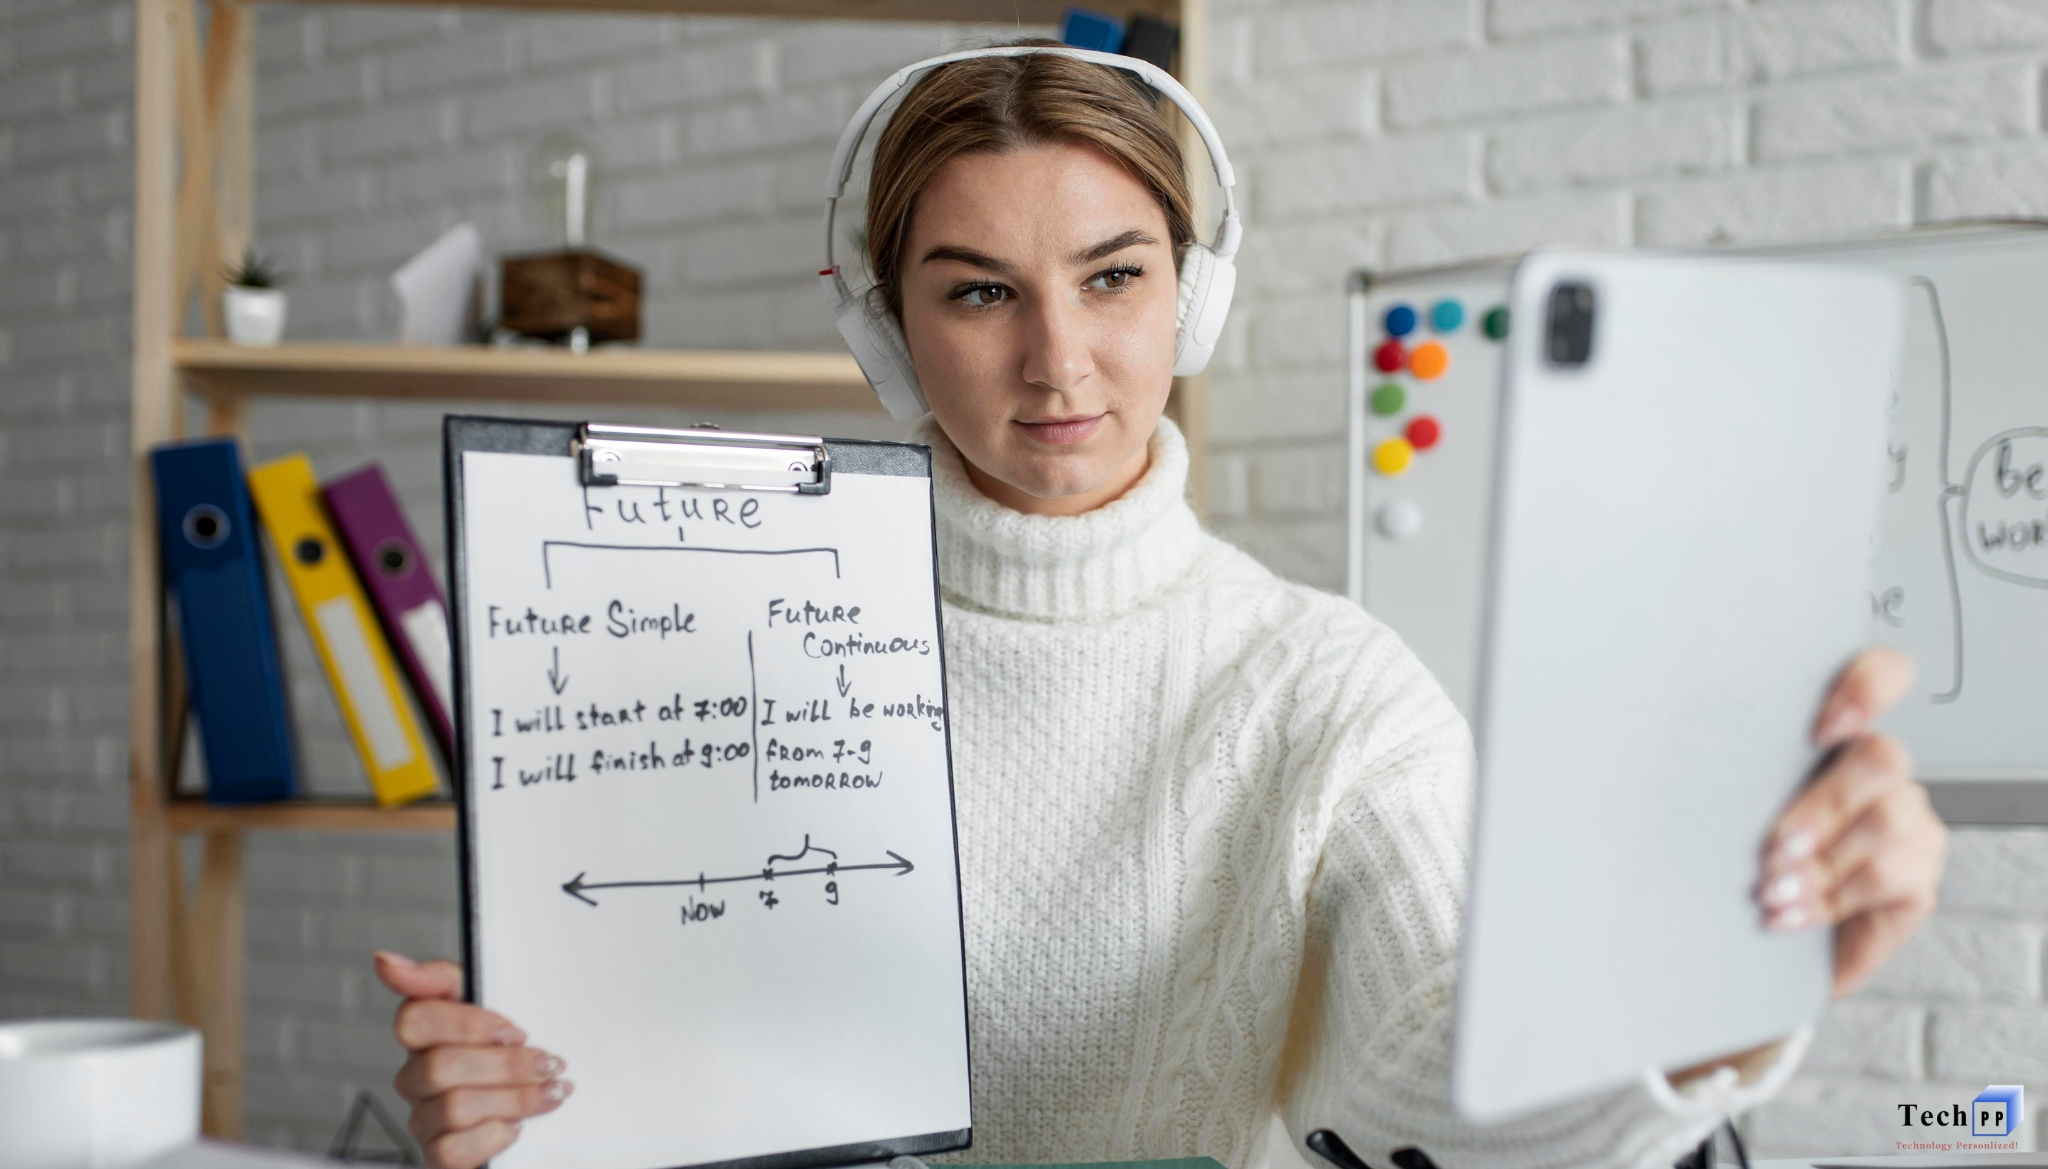 Future
Future Simple
I will start at 7:00
I will finish at 9:00
Future
Continuous
I will be working
from 7-9
tomorrow
Now 7 9
be
Tech PP
Technology Personlized!